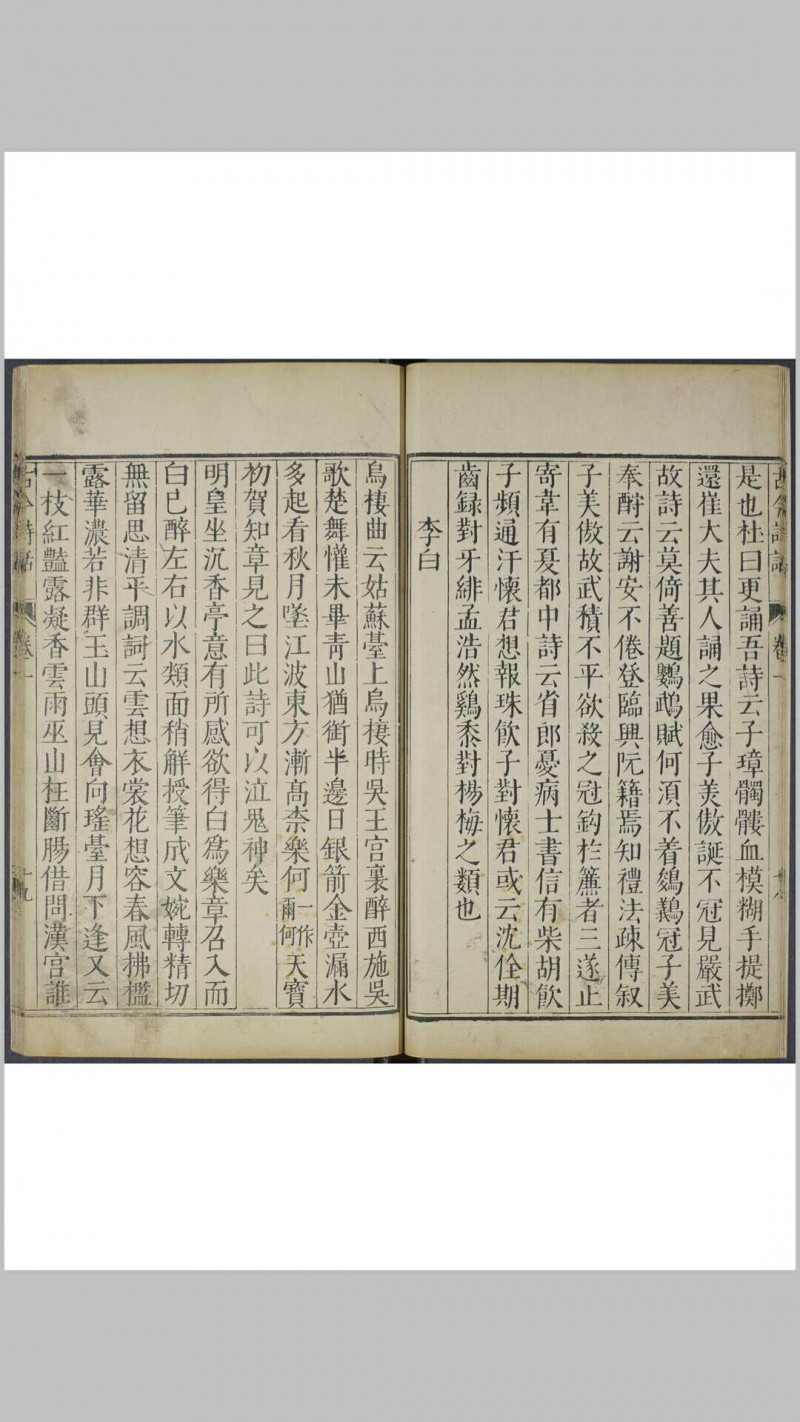 古今詩話 卷一 十八
是也杜曰更誦吾詩云子璋髑髏血模糊手提擲
還崔大夫其人誦之果愈子美傲誕不冠見嚴武
故詩云莫倚善題鸚鵡賦何湏不着鵕鸃冠子美
奉酧云謝安不倦登臨興阮籍焉知禮法疎傳叙
子美傲故武積不平欲殺之冠鈎於簾者三遂止
寄韋有夏都中詩云省郎憂病士書信有柴胡飲
子頻通汗懷君想報珠飲子對懷君或云沈佺期
齒録對牙緋孟浩然鷄黍對楊梅之類也
李白
烏棲曲云姑蘇臺上烏棲時吳王宫裏醉西施吳
歌楚舞懽未畢青山猶銜半邊日銀箭金壺漏水
多起看秋月墜江波東方漸高柰樂何一作爾何天寶
初賀知章見之曰此詩可以泣鬼神矣
明皇坐沉香亭意有所感欲得白爲樂章召入而
白已醉左右以水頮面稍解授筆成文婉轉精切
無留思清平調詞云雲想衣裳花想容春風拂檻
露華濃若非群玉山頭見會向瑤臺月下逢又云
一枝紅豔露凝香雲雨巫山枉斷腸借問漢宫誰
古今詩話 卷一 十九